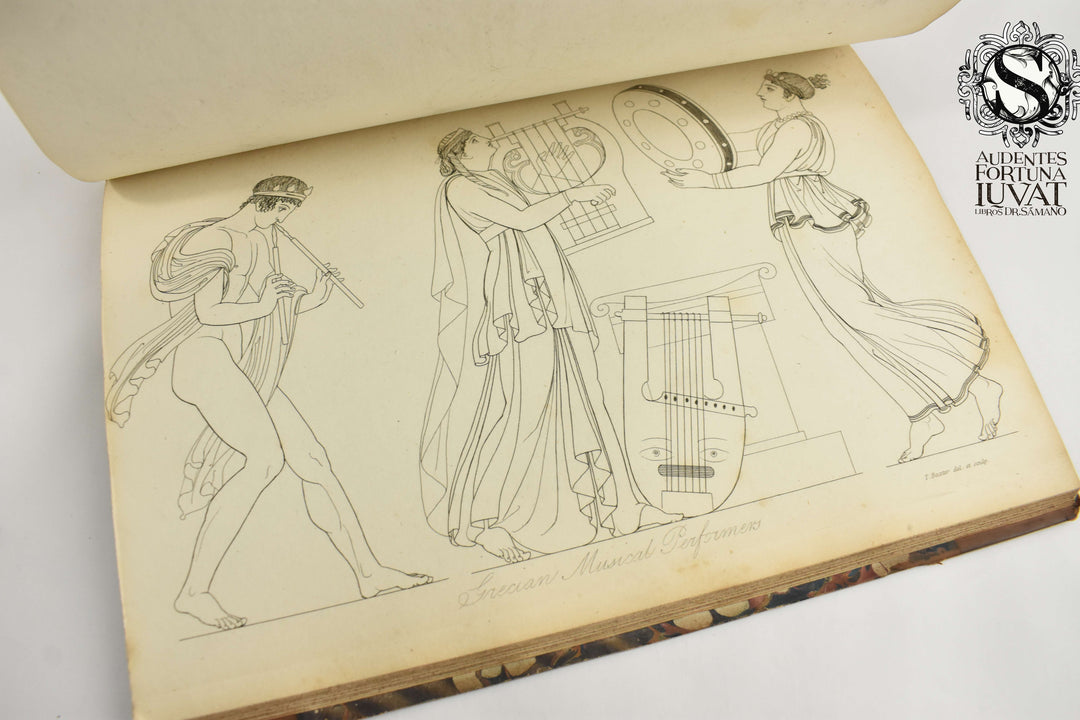 S
AUDENTES
FORTUNA
IUVAT
LIBROS DR. SÁMANO
T. Baxter del. et sculp.
Grecian Musical Performers